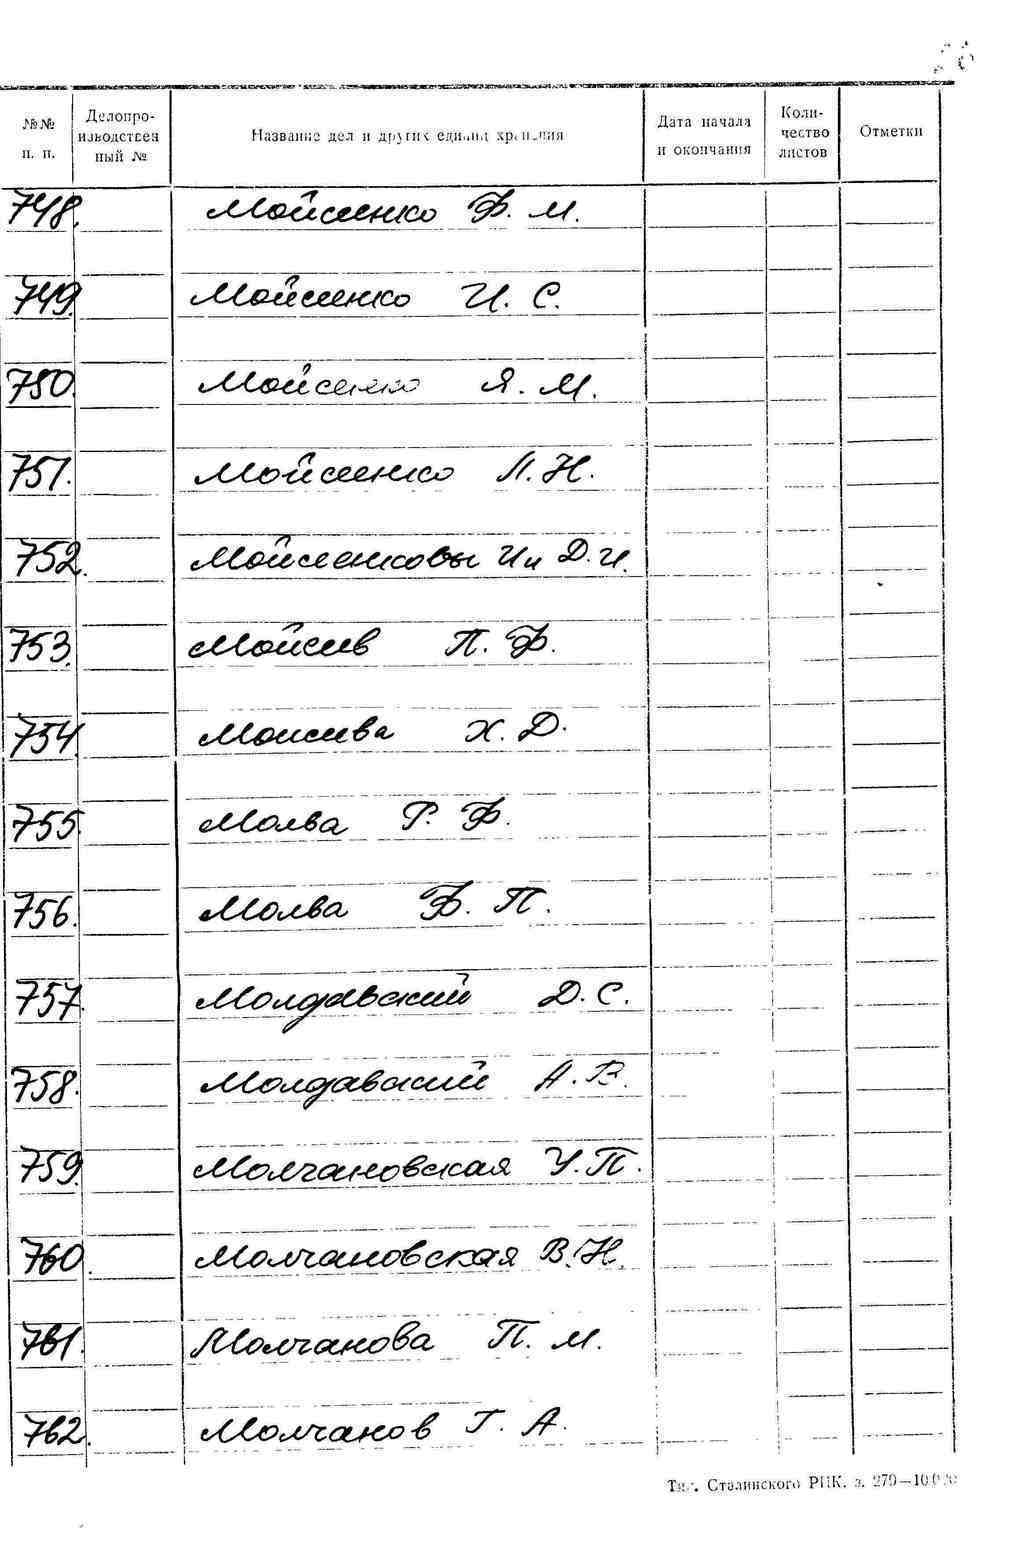 №№ п. п. Делопроизводствен ный № Название дел и других единиц хранения Дата начала и окончания Количество листов Отметки
748. Мойсеенко Ф. М.
749. Мойсеенко И. С.
750. Мойсеенко Я. М.
751. Мойсеенко Л. Н.
752. Мойсеенковы И и Д. И.
753. Мойсеев П. Ф.
754. Моисеева Х. Д.
755 Молва Г. Ф.
756. Молва Ф. П.
757. Молдавский Д. С.
758. Молдавский А. В.
759. Молчановская У. П.
760. Молчановская В. Н.
761. Молчанова П. М.
762. Молчанов Г. А.
Тип. Сталинского РПК. з. 279—10.0